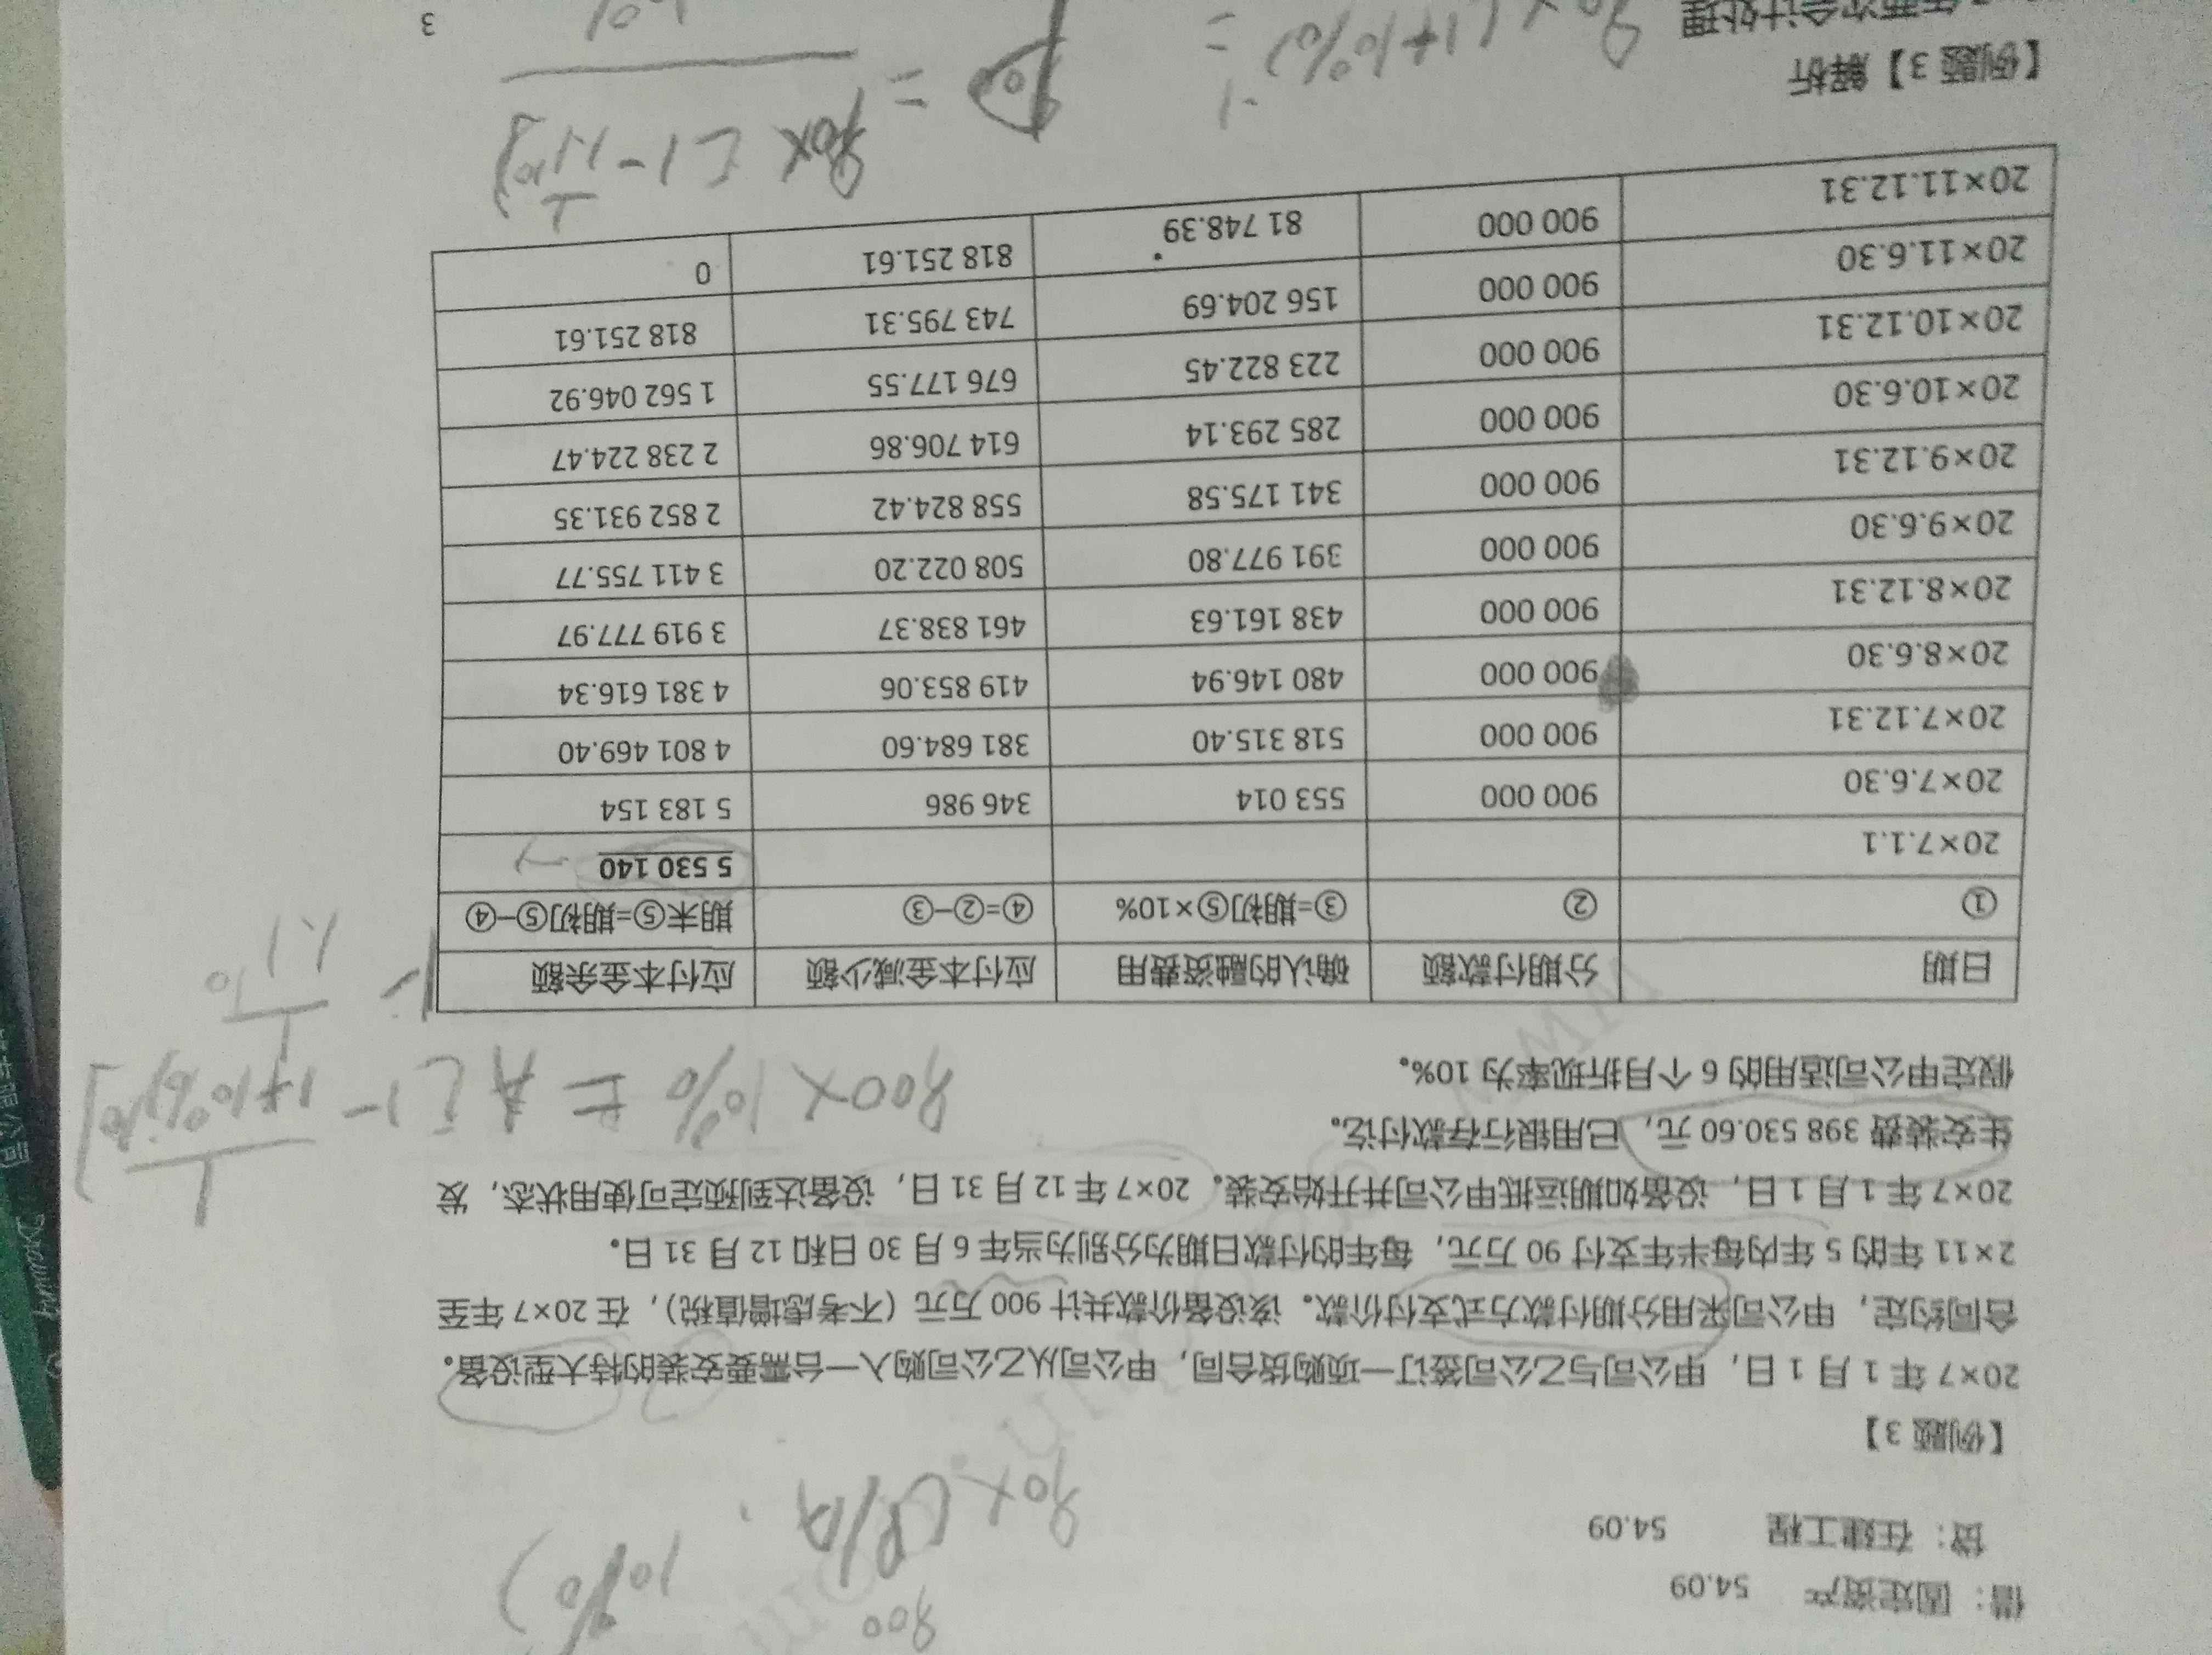 借：固定资产 54.09
贷：在建工程 54.09
900
90×(P/A, 10%)
【例题 3】
20×7 年 1 月 1 日，甲公司与乙公司签订一项购货合同，甲公司从乙公司购入一台需要安装的特大型设备。
合同约定，甲公司采用分期付款方式支付价款。该设备价款共计 900 万元（不考虑增值税），在 20×7 年至
2×11 年的 5 年内每半年支付 90 万元，每年的付款日期为分别为当年 6 月 30 日和 12 月 31 日。
20×7 年 1 月 1 日，设备如期运抵甲公司并开始安装。20×7 年 12 月 31 日，设备达到预定可使用状态，发
生安装费 398 530.60 元，已用银行存款付讫。
假定甲公司适用的 6 个月折现率为 10%。
日期 分期付款额 确认的融资费用 应付本金减少额 应付本金余额
① ② ③=期初⑤×10% ④=②−③ 期末⑤=期初⑤−④
20×7.1.1 5 530 140
20×7.6.30 900 000 553 014 346 986 5 183 154
20×7.12.31 900 000 518 315.40 381 684.60 4 801 469.40
20×8.6.30 900 000 480 146.94 419 853.06 4 381 616.34
20×8.12.31 900 000 438 161.63 461 838.37 3 919 777.97
20×9.6.30 900 000 391 977.80 508 022.20 3 411 755.77
20×9.12.31 900 000 341 175.58 558 824.42 2 852 931.35
20×10.6.30 900 000 285 293.14 614 706.86 2 238 224.47
20×10.12.31 900 000 223 822.45 676 177.55 1 562 046.92
20×11.6.30 900 000 156 204.69 743 795.31 818 251.61
20×11.12.31 900 000 81 748.39 818 251.61 0
【例题 3】解析
年两次会计处理
3